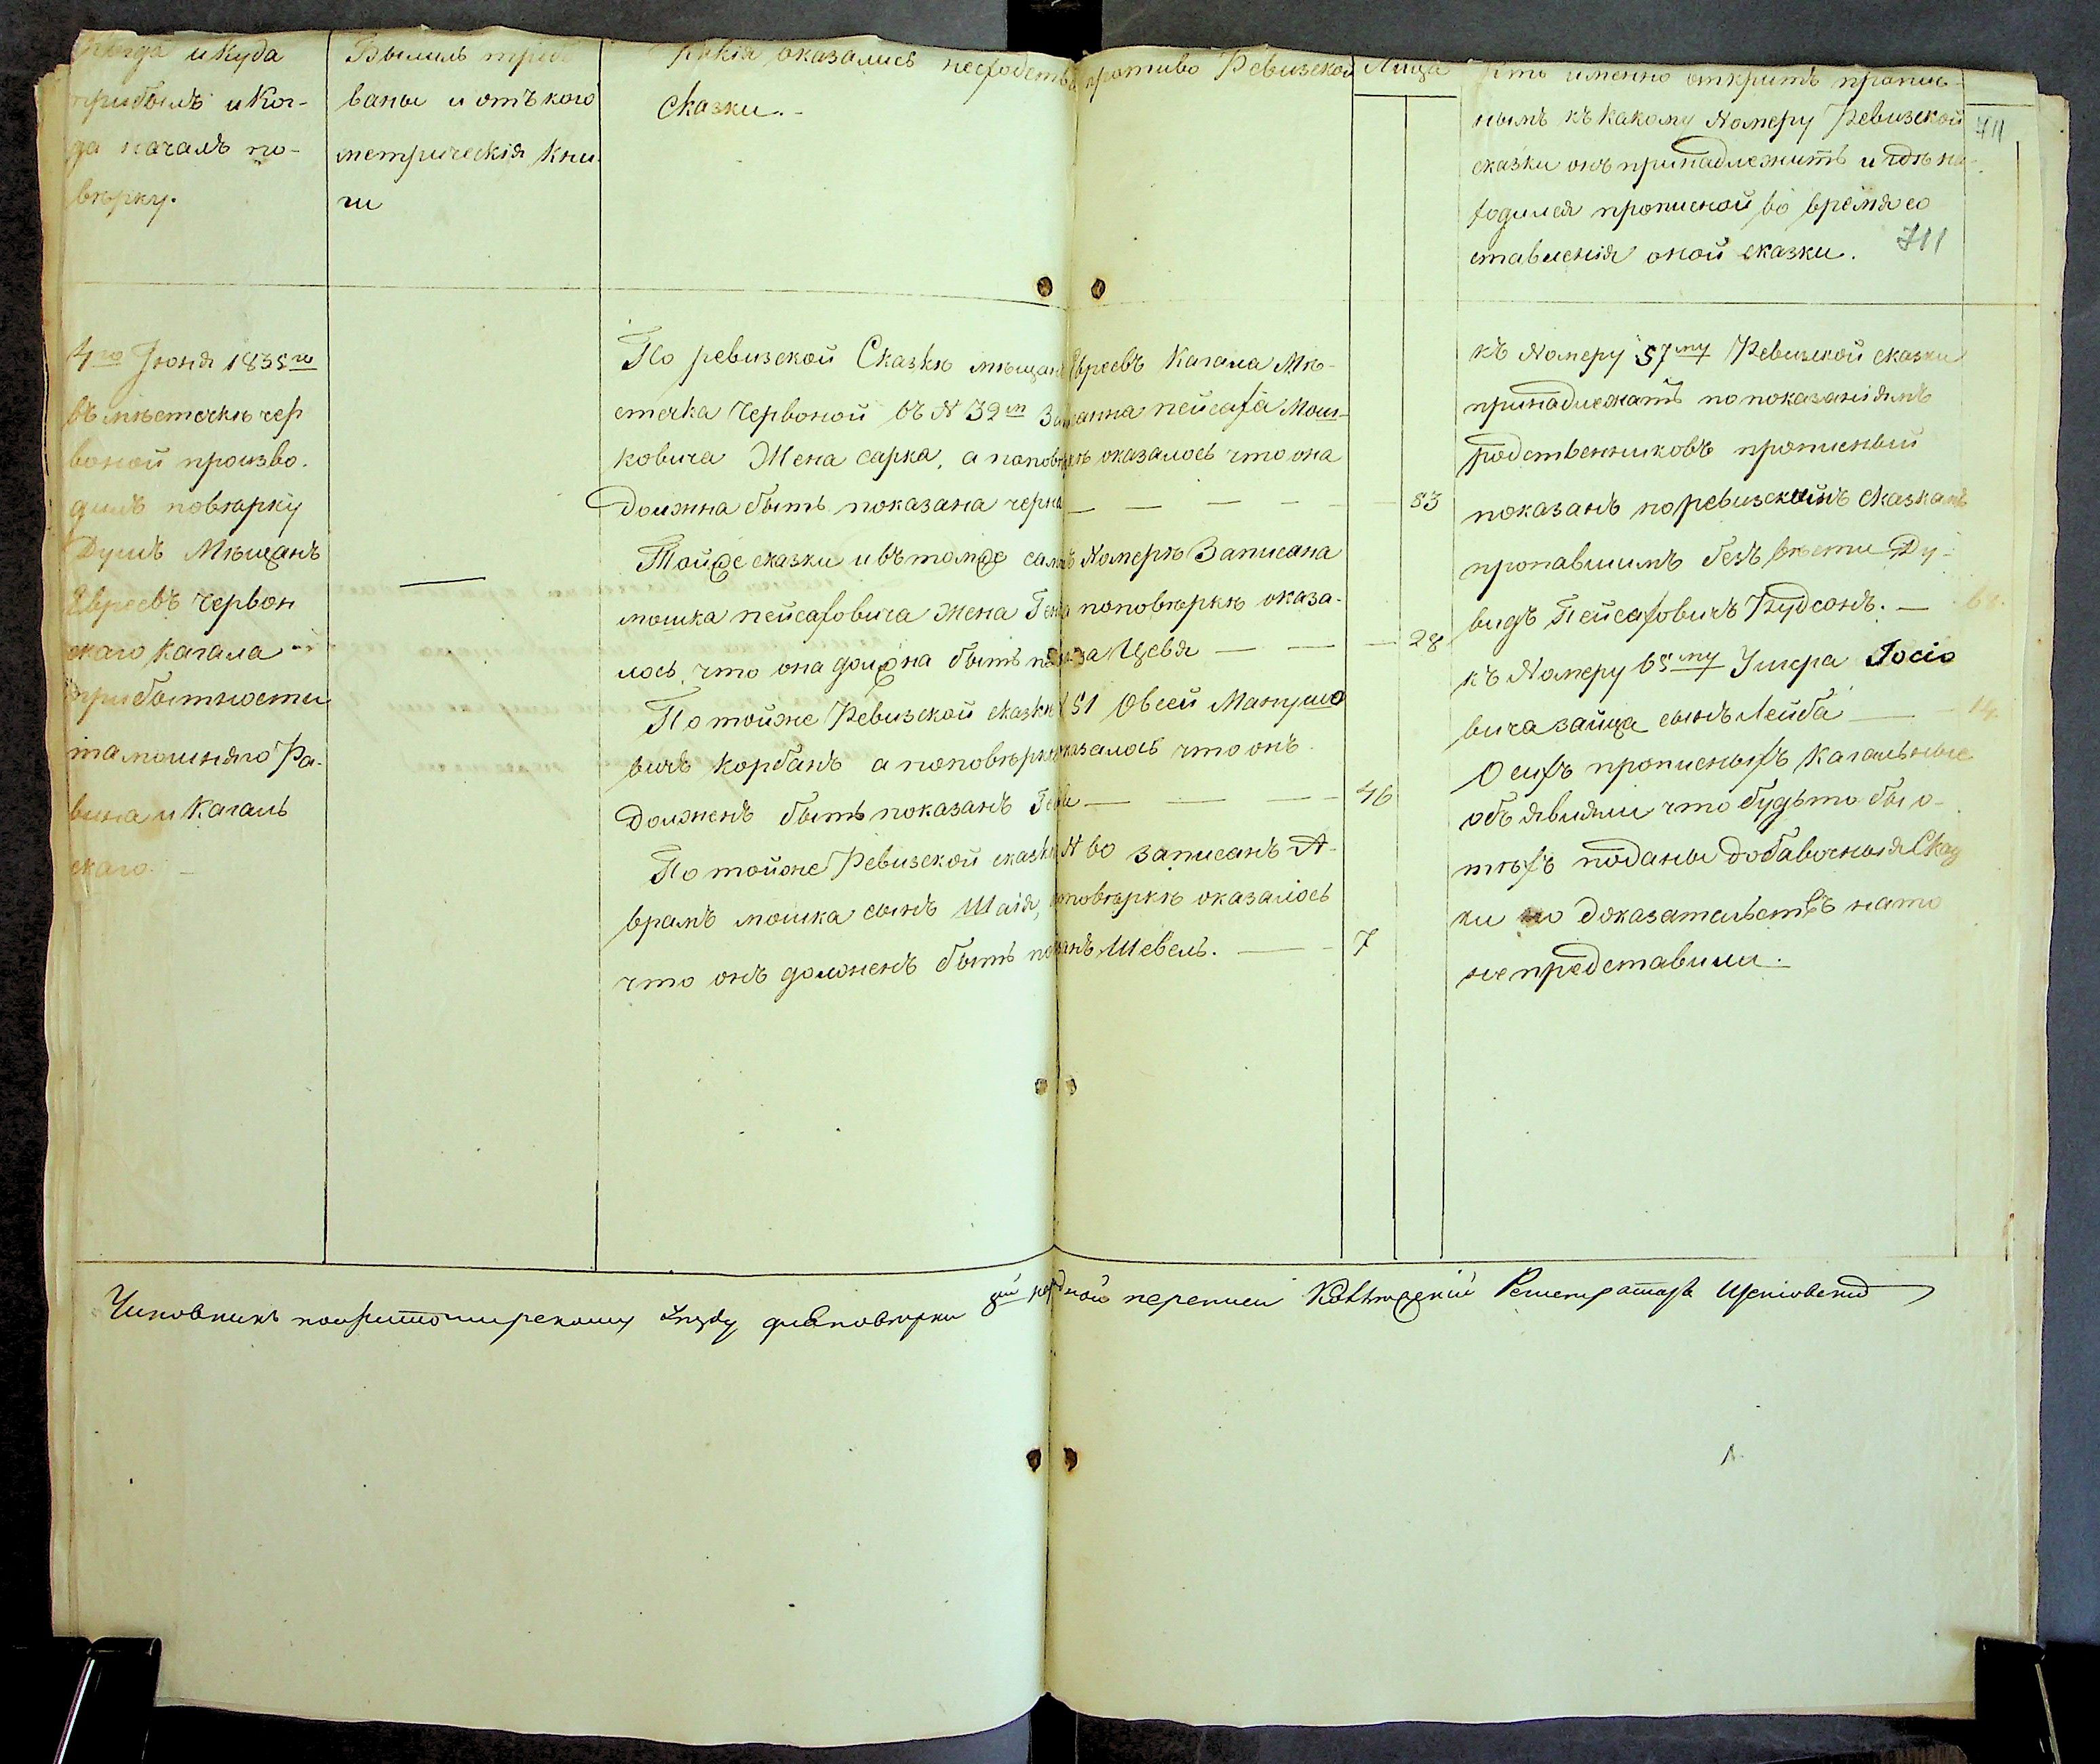 Когда и куда
прибылъ и ког-
да началъ по-
вѣрку.
Былиль требо
ваны и отъ кого
метрическія кни
ги
Какія оказались несходства противо Ревизской
Сказки.-
Лица
Кто именно открытъ пропис-
нымъ къ какому Номеру Ревизской
сказки онъ принадлежитъ и гдѣ на-
ходился прописной во время со
ставленія оной сказки.
711
711
4го Іюня 1835го
въ мѣстечкѣ чер
воной произво.
дилъ повѣрку
Душъ Мѣщанъ
Евреевъ Червон
скаго кагала
при бытности
тамошняго Ра.
вина и Кагаль
скаго.
По ревизской Сказкѣ мѣщанъ Евреевъ Кагала Мѣ-
стечка Червоной въ № 39м Записанна пейсаха Мош-
ковича Жена сарка, а по повѣркѣ оказалось что она
Должна быть показана черна — — — — — 83
Тойже сказки и въ томже самомъ Номерѣ Записана
мошка пейсаховича жена Геня по повѣркѣ оказа-
лось, что она должна быть показана Цевя — — — 28
По тойже Ревизской сказки № 51 Овсей Манушо
вичъ корбанъ а по повѣрке оказалось что онъ
Долженъ быть показанъ — — — 46
По тойже Ревизской сказки № 60 записанъ А-
врамъ мошка сынъ Шаія, по повѣркѣ оказалось
что онъ долженъ быть показанъ Шевель. — 7
къ Номеру 57му Ревизской сказки
принадлежатъ по показаніямъ
родственниковъ прописный
показанъ по ревизскимъ сказкамъ
пропавшимъ безъ вѣсти Ду-
видъ Пейсаховичъ — 6
къ Номеру 65му Умера Іосіо
вича зайца сынъ Лейба — 14.
О сихъ прописныхъ Кагальные
объявили что будьто бы о-
тѣхъ поданы добавочныя Сказ
ки но доказательствъ на то
не представили.
Чиновникъ по житомирскому уѣзду для повѣрки народной переписи Регистраторъ